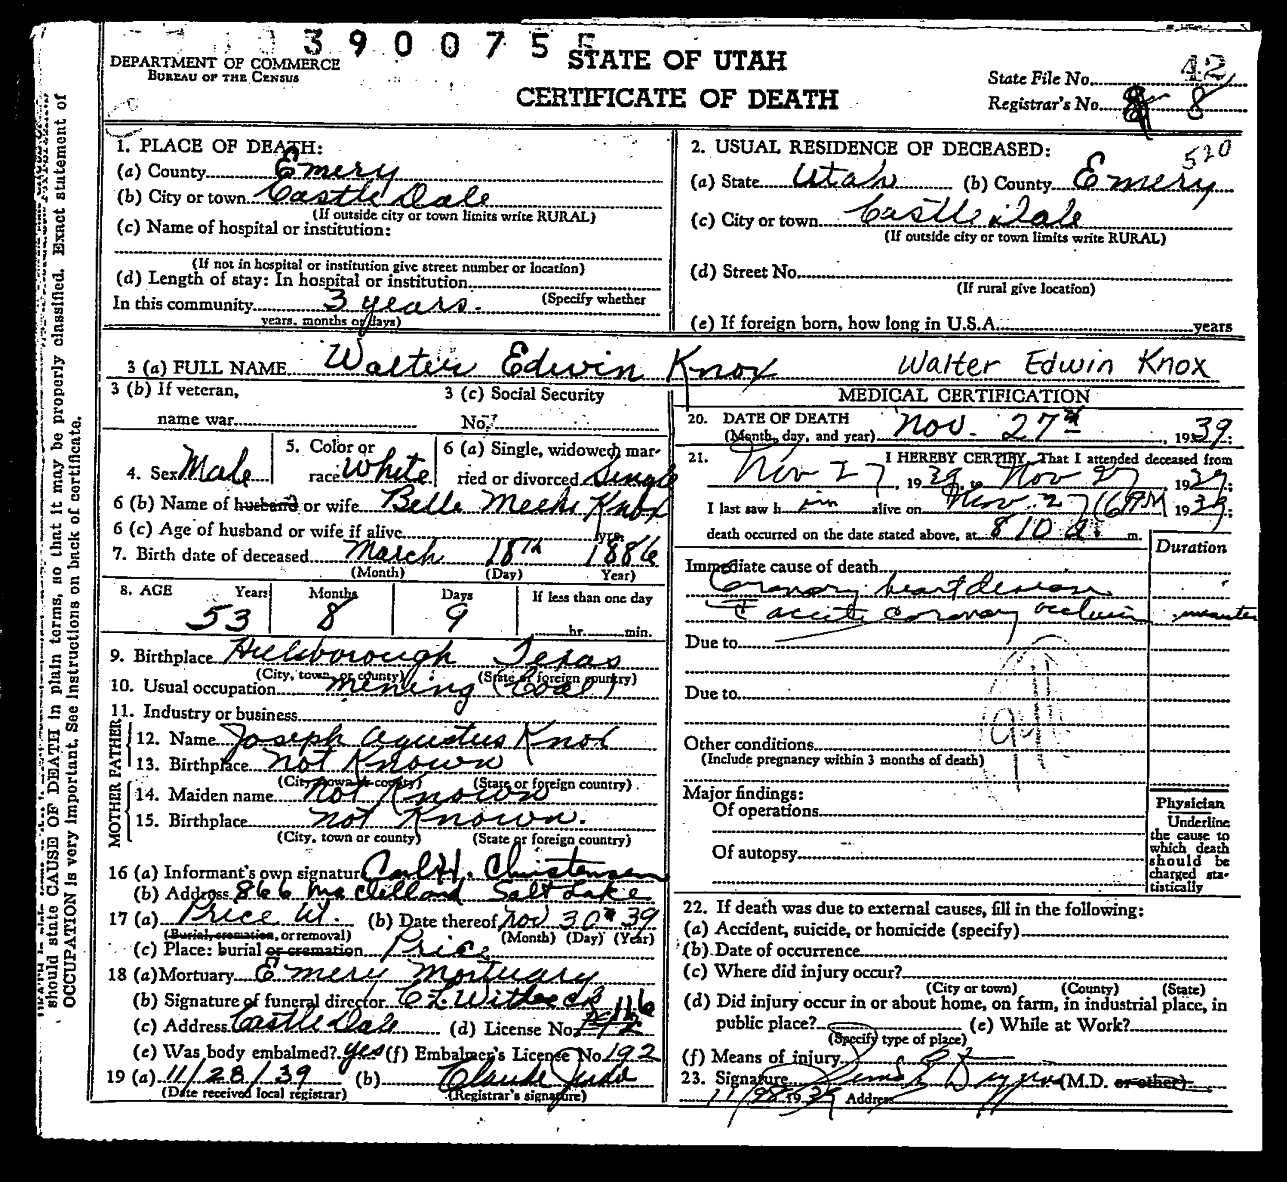 3900755
DEPARTMENT OF COMMERCE
BUREAU OF THE CENSUS
STATE OF UTAH
CERTIFICATE OF DEATH
State File No. 42
Registrar's No. 8
should state CAUSE OF DEATH in plain terms, so that it may be properly classified. Exact statement of
OCCUPATION is very important. See instructions on back of certificate.
1. PLACE OF DEATH:
(a) County Emery
(b) City or town Castle Dale
(If outside city or town limits write RURAL)
(c) Name of hospital or institution:
(If not in hospital or institution give street number or location)
(d) Length of stay: In hospital or institution
(Specify whether
In this community 3 years.
years, months or days)
2. USUAL RESIDENCE OF DECEASED:
520
(a) State Utah (b) County Emery
(c) City or town Castle Dale
(If outside city or town limits write RURAL)
(d) Street No.
(If rural give location)
(e) If foreign born, how long in U.S.A. years
3 (a) FULL NAME Walter Edwin Knox Walter Edwin Knox
3 (b) If veteran,
name war
3 (c) Social Security
No.
4. Sex Male
5. Color or
race White
6 (a) Single, widowed mar-
ried or divorced Single
6 (b) Name of husband or wife Belle Meeks Knox
6 (c) Age of husband or wife if alive yrs.
7. Birth date of deceased March 18th 1886
(Month) (Day) Year)
8. AGE Years Months Days If less than one day
53 8 9 hr. min.
9. Birthplace Hillsborough Texas
(City, town or county) (State or foreign country)
10. Usual occupation Mining (Coal)
11. Industry or business
FATHER
12. Name Joseph Agustus Knox
13. Birthplace Not Known
(City, town or county) (State or foreign country)
MOTHER
14. Maiden name Not Known
15. Birthplace Not Known.
(City, town or county) (State or foreign country)
16 (a) Informant's own signature Carl H. Christensen
(b) Address 866 McClelland Salt Lake
17 (a) Price Ut. (b) Date thereof Nov 30th 39
(Burial, cremation, or removal) (Month) (Day) (Year)
(c) Place: burial or cremation Price
18 (a) Mortuary Emery Mortuary
(b) Signature of funeral director
(c) Address Castle Dale (d) License No. 116
(e) Was body embalmed? yes (f) Embalmer's License No 192
19 (a) 11/28/39 (b) Claude
(Date received local registrar) (Registrar's signature)
MEDICAL CERTIFICATION
20. DATE OF DEATH
(Month, day, and year) Nov. 27th, 1939.
21. I HEREBY CERTIFY, That I attended deceased from
Nov 27, 1939, to Nov 27, 1939;
I last saw him alive on Nov 27 (6 PM 1939;
death occurred on the date stated above, at 8 10 m.
Duration
Immediate cause of death
Coronary heart disease
acute coronary occlusion minutes
Due to
Due to
Other conditions
(Include pregnancy within 3 months of death)
Major findings:
Of operations
Of autopsy
Physician
Underline
the cause to
which death
should be
charged sta-
tistically
22. If death was due to external causes, fill in the following:
(a) Accident, suicide, or homicide (specify)
(b) Date of occurrence
(c) Where did injury occur?
(City or town) (County) (State)
(d) Did injury occur in or about home, on farm, in industrial place, in
public place? (e) While at Work?
(Specify type of place)
(f) Means of injury
23. Signature (M.D. or other)
11/28 1939 Address